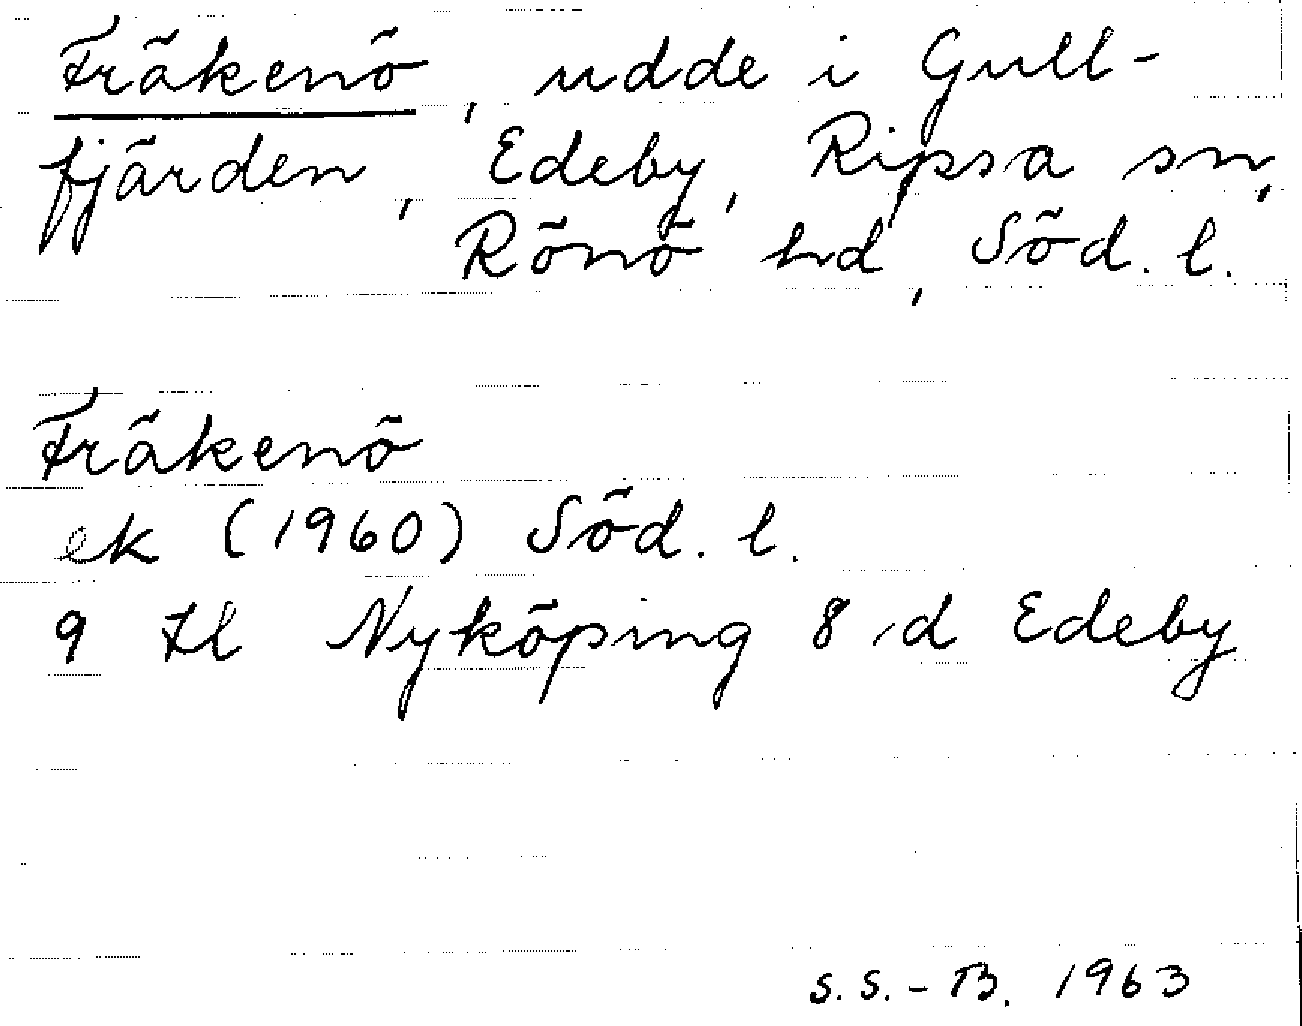 Fräkenö, udde i Gull-
fjärden, Edeby, Ripsa sn,
Rönö hd, Söd. l.
Fräkenö
ek (1960) Söd. l.
9 H Nyköping 8 d Edeby
S. S. - B. 1963